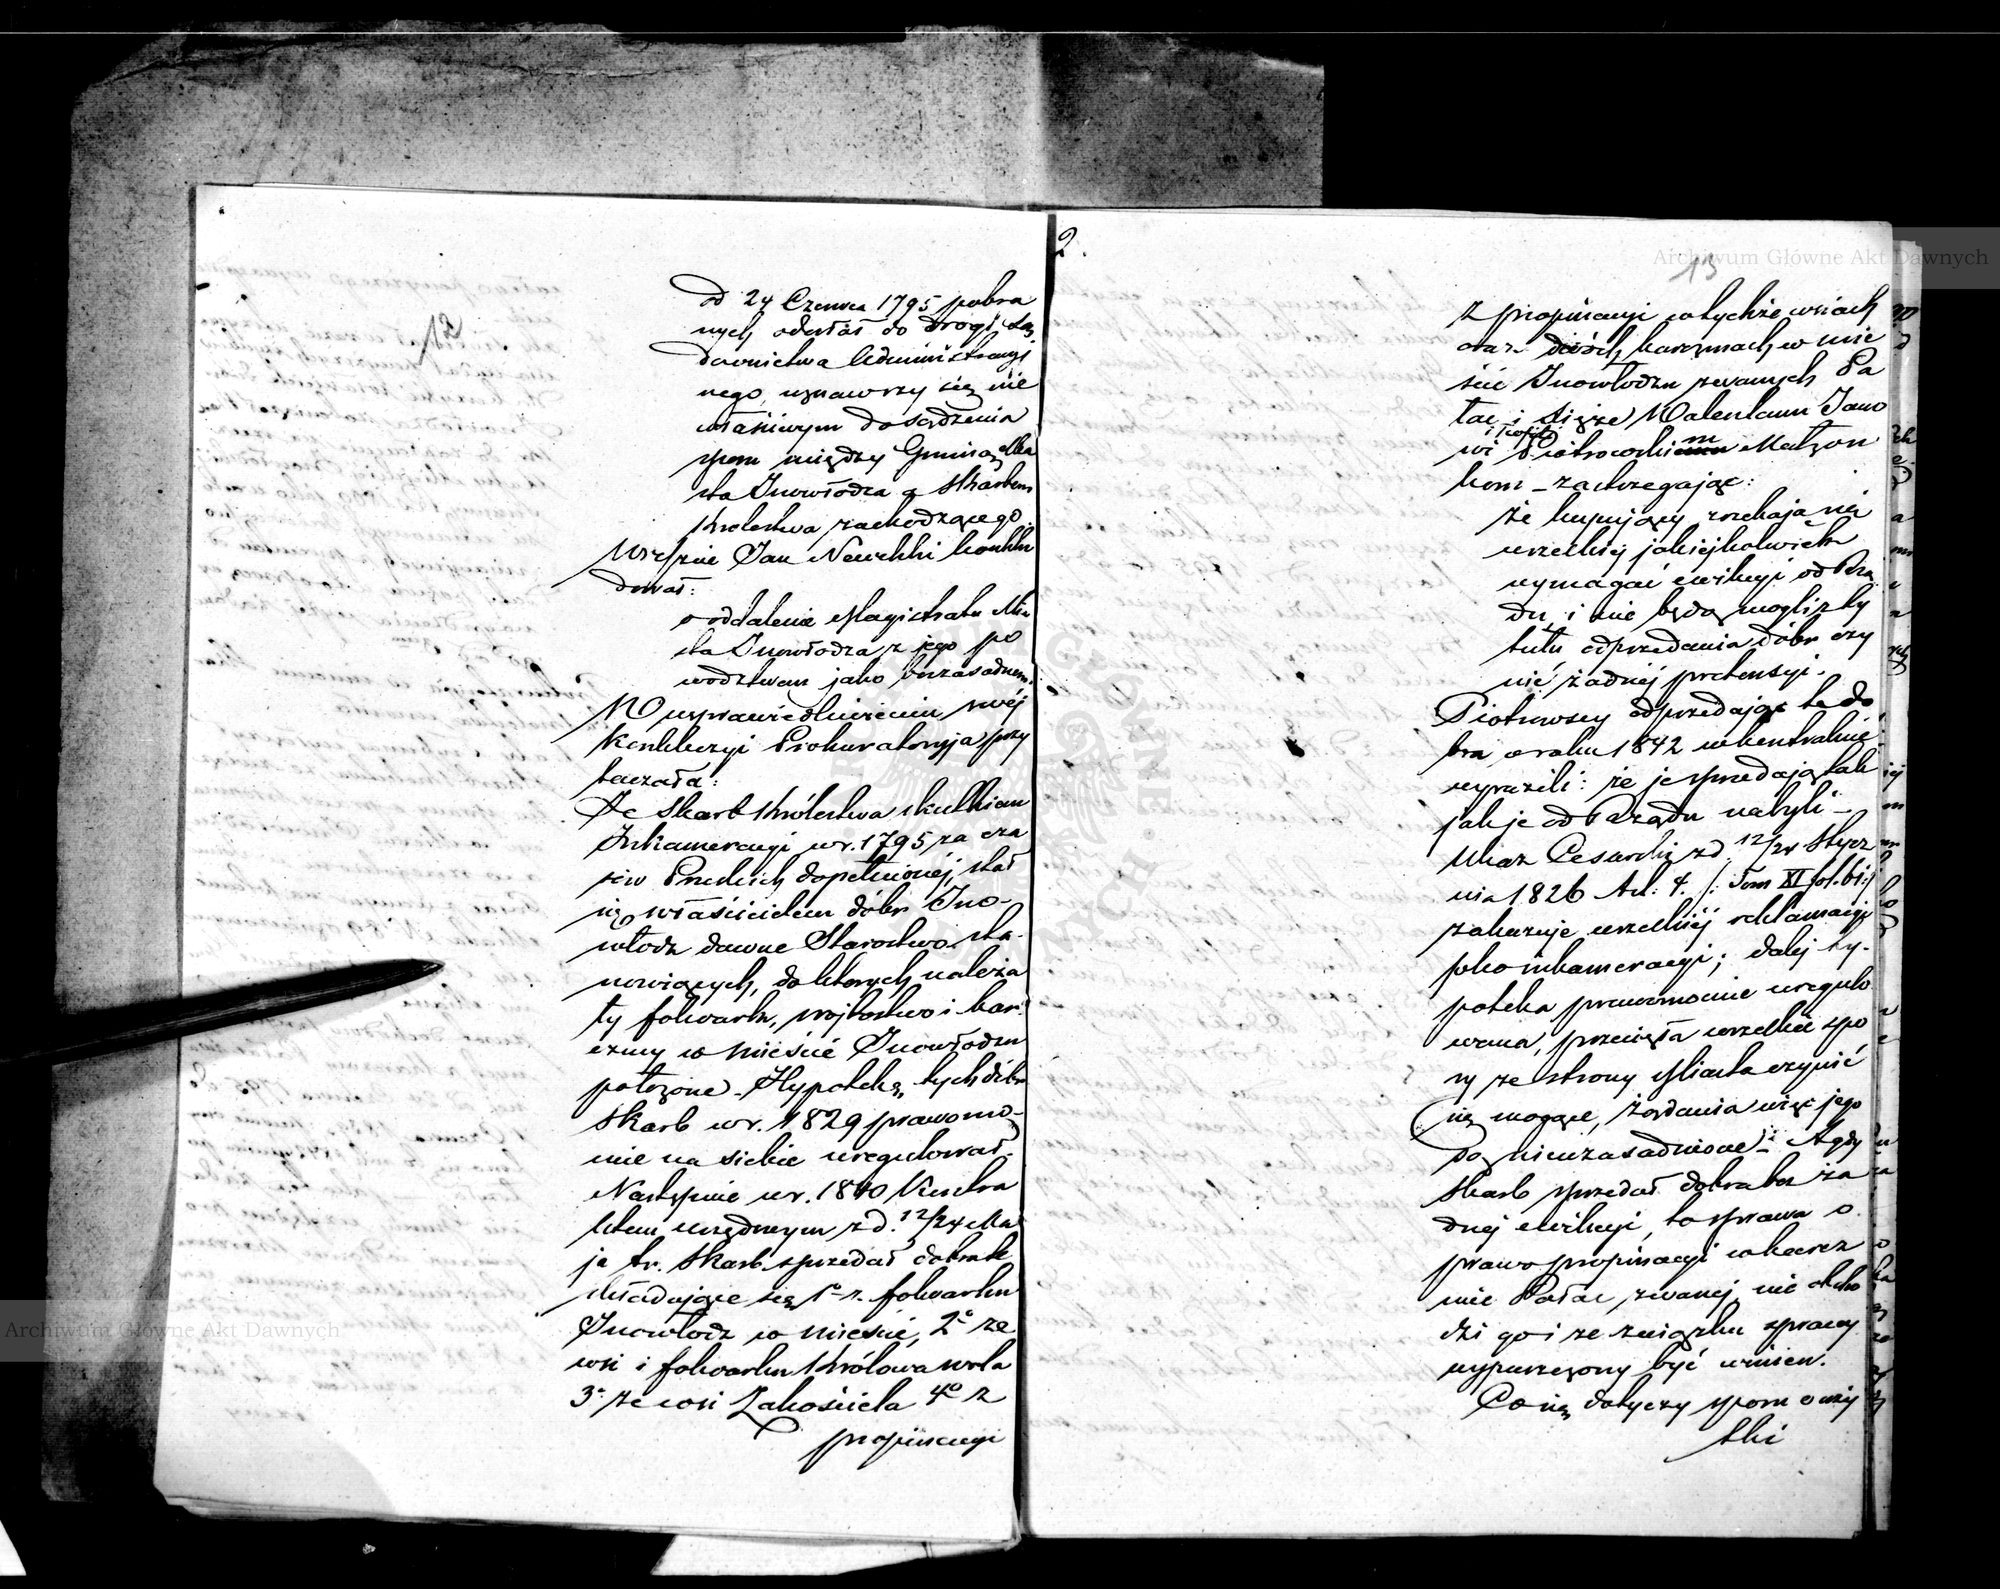 12
od 24 Czerwca 1795 pobra
nych odesłał do drogi Są
downictwa Administracyj
nego, uznawszy się nie
właściwym do sądzenia
sporu między Gminą Mia
sta Inowłodza a Skarbem
Królestwa zachodzącego
Wreszcie Jan Newelski konklu
dował:
o oddalenie Magistratu Mia
sta Inowłodza z jego po
wództwem jako bezzasadnem.
W usprawiedliwieniu swej
konkluzyi Prokuratorya przy
taczała:
Że Skarb Królestwa skutkiem
Inkameracyi w r. 1795 za cza
sów Pruskich dopełnionej, stał
się właścicielem dóbr Ino-
włodz dawne Starostwo sta-
nowiących, do których należa
ły folwark, wójtostwo i kar
czmy w mieście Inowłodzu
położone. Hypotekę tych dóbr
Skarb w r. 1829 prawomo-
cnie na siebie uregulował.
Następnie w r. 1840 Kontra
ktem urzędowym z d. 12/24 Ma
ja t.r. Skarb sprzedał dobra te
składające się 1º z folwarku
Inowłodz w mieście, 2º ze
wsi i folwarku Królowa wola
3º ze wsi Zakościela 4º z
propinacyi
2.
13
z propinacyi w tychże wsiach
oraz dwóch karczmach w mie
ście Inowłodzu zwanych Pa
łac i Walentemu Jano
wi i Piotrowskim Małżon
kom – zastrzegając:
że kupujący zrzekają się
wszelkiej jakiejkolwiek
wymagać ewikcyi od Rzą
du, i nie będą mogli z ty
tułu odprzedania dóbr czy
nić żadnej pretensyi.
Piotrowscy odprzedając te do
bra w roku 1842 w kontrakcie
wyrazili: że je sprzedają tak
jak je od Rządu nabyli –
Ukaz Cesarski z d. 12/24 Stycz
nia 1826 Art: 4. /: Tom XI fol. 61:/
zakazuje wszelkiej reklamacyi
poko inkameracyi; dalej hy-
poteka prawomocnie uregulo
wana, przecięła wszelkie spo
ry ze strony Miasta czynić
się mogące, żądania więc jego
są nieuzasadnione – A gdy
Skarb sprzedał dobra bez ża
dnej ewikcyi, to sprawa o
prawo propinacyi w karcz
mie Pałac zwanej nie obcho
dzi go i ze związku sprawy
wypuszczony być winien.
Co się dotyczy sporu o wszy
stki